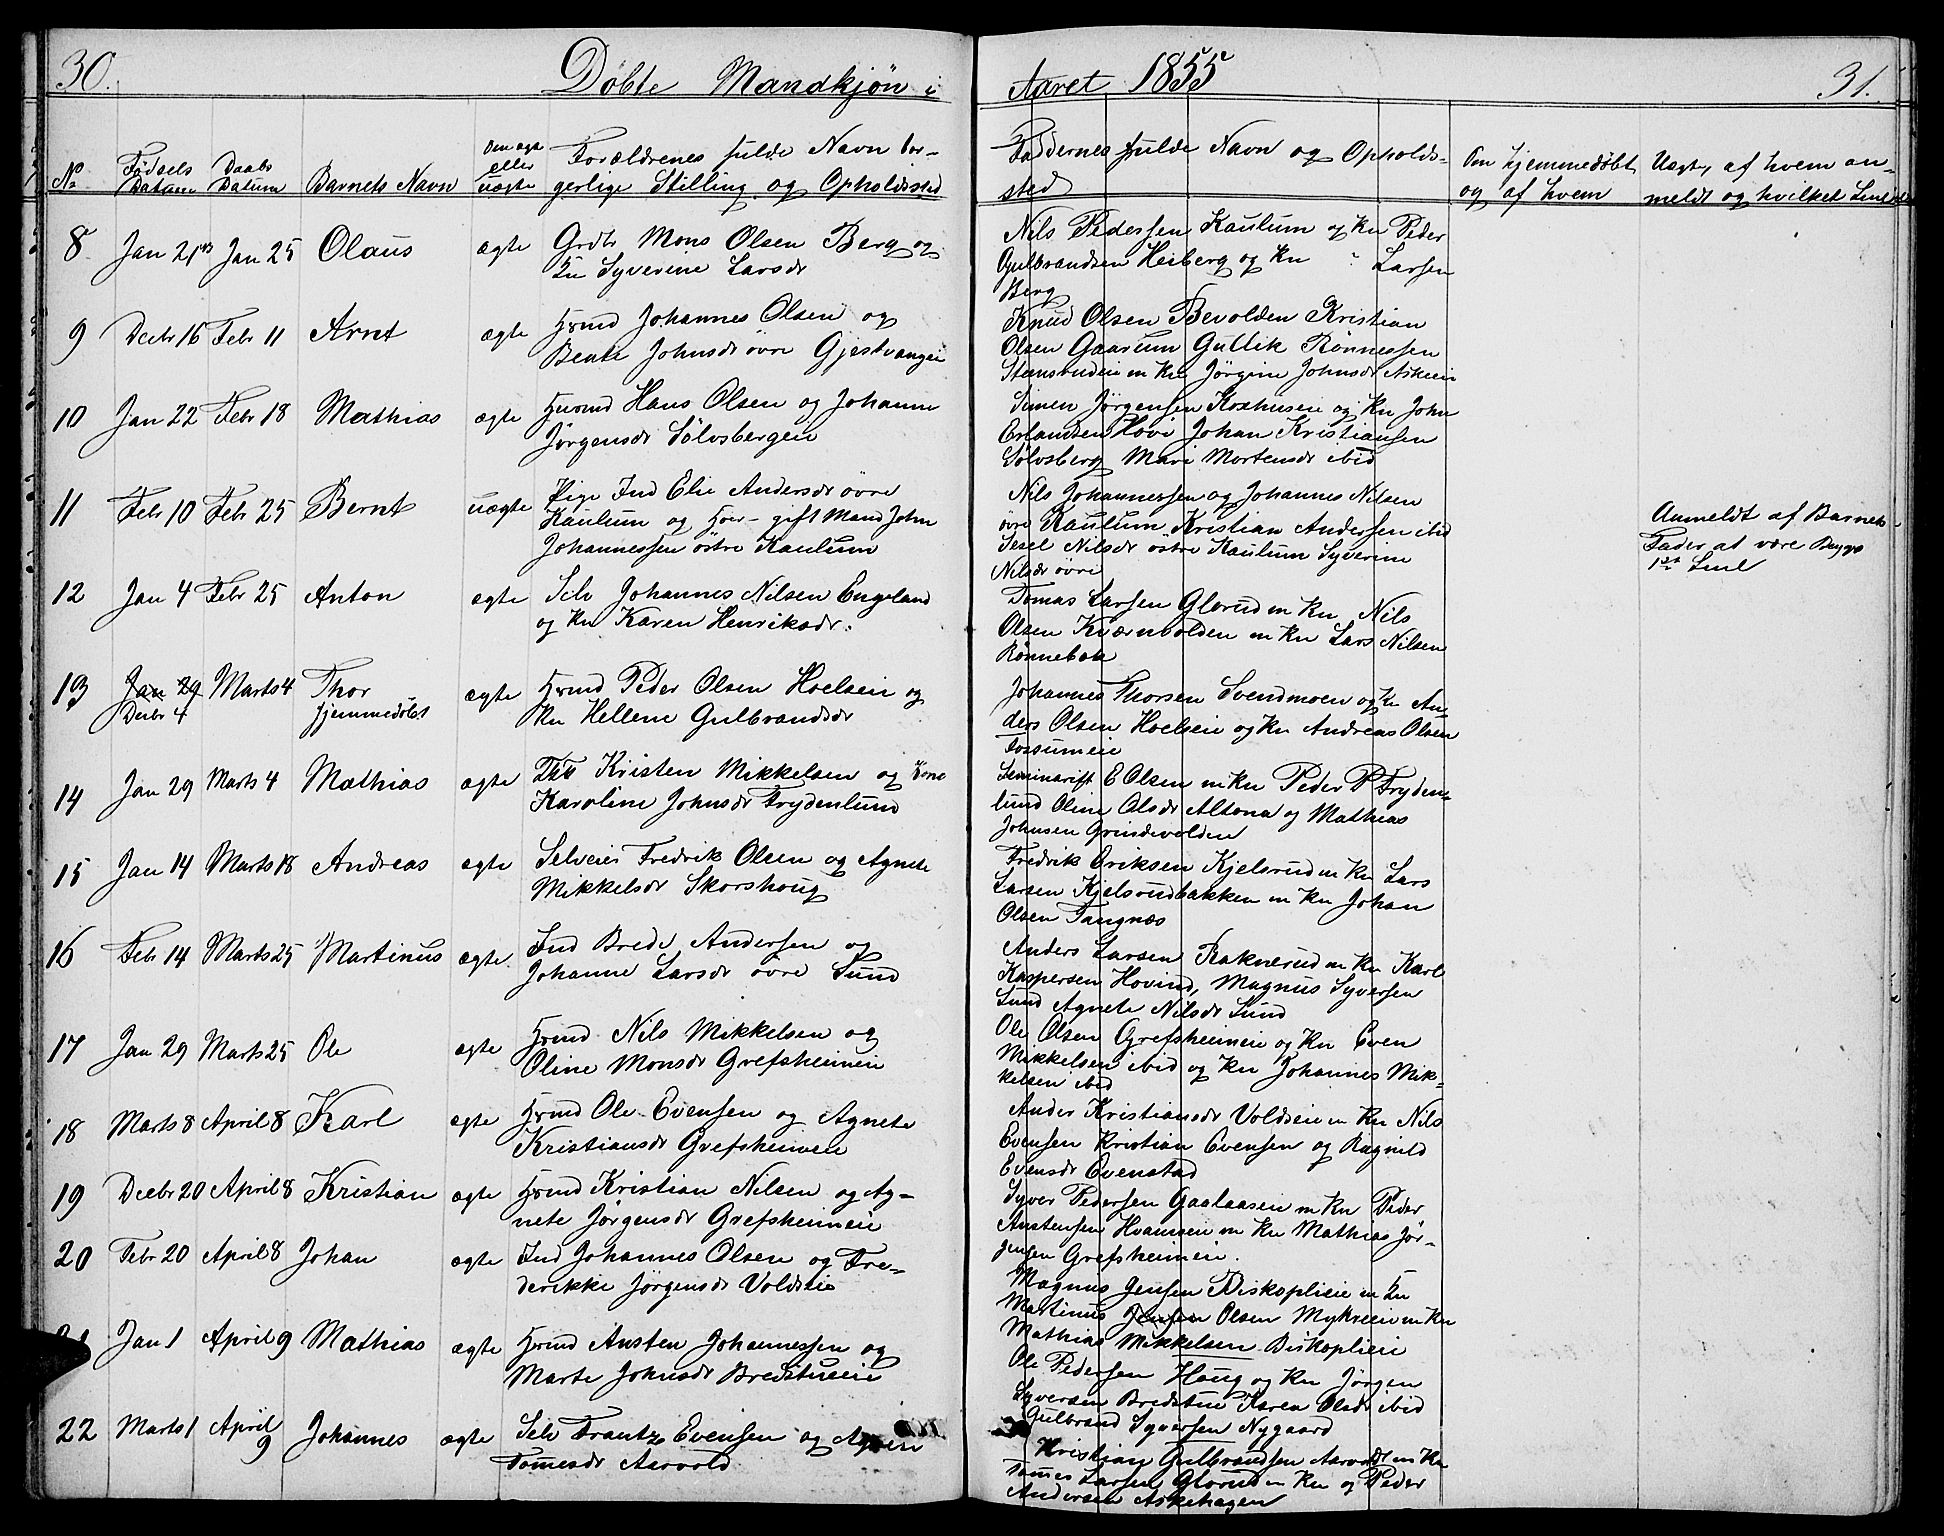 30.
Döbte Mandkjøn i
Aaret 1855
31.
No
Födsels Datum
Daabs Datum
Barnets Navn
Om ægte eller uægte
Forældrenes fulde Navn bor-
gerlige Stilling og Opholdssted
Faddernes fulde Navn og Opholds-
sted
Om hjemmedøbt
og af hvem
Uægte, af hvem an-
meldt og hvilket
8 Jan 21 Jan 25 Olaus ægte Grdbr Mons Olsen Berg og
Kn Syverine Larsdr
Nils Pedersen Kaulum og Kn Peder
Gulbrandsen Heiberg og Kn Larsen
Berg
9 Decbr 16 Febr 11 Arnt ægte Hrmd Johannes Olsen og
Beate Johnsdr øvre Gjestvangei
Knud Olsen Bevolden Kristian
Olsen Gaarum Gullik Rönnessen
Stensrudeie m Kn Jørgine Johnsdr Askeie
10 Jan 22 Febr 18 Mathias ægte Husmd Hans Olsen og Johanne
Jørgensdr Sölvsbergeie
Simen Jørgensen Korhuseie og Kn John
Erlandsen Hovi Johan Kristiansen
Sölvsberg Mari Mortensdr ibid
11 Febr 10 Febr 25 Bernt uægte Pige Ind Elie Andersdr övre
Kaulum og gift Mand John
Johannessen östre Kaulum
Nils Johannessen og Johannes Nilsen
övre Kaulum Kristian Andersen ibid
Sesel Nilsdr östre Kaulum Syverine
Nilsdr övre
Anmeldt af Barnets
Fader at være Begges
1ste
12 Jan 4 Febr 25 Anton ægte Selv Johannes Nilsen Engeland
og Kn Karen Henriksdr.
Tomas Larsen Glorud m Kn Nils
Olsen Kværnvolden m Kn Lars Nilsen
Rönnebek
13 Jan 29 Marts 4 Thor ægte Hrmd Peder Olsen Hoelseie og
Decbr 4 hjemmedöbt Kn Hellene Gulbrandsdr
Johannes Thorsen Svendmoen og Kn An-
ders Olsen Hoelseie og Kn Andreas Olsen
Fossumeie
14 Jan 29 Marts 4 Mathias ægte Kristen Mikkelsen og Kone
Karoline Johnsdr Frydenlund
Seminarist E Olsen m Kn Peder P Fryden-
lund Oline Olsdr Altona og Mathias
Johnsen Grindevolden
15 Jan 14 Marts 18 Andreas ægte Selveier Fredrik Olsen og Agnete
Mikkelsdr Skorshoug
Fredrik Eriksen Kjelsrud m Kn Lars
Larsen Kjelsrudbakken m Kn Johan
Olsen Tangnæs
16 Febr 14 Marts 25 Martinus ægte Ind Brede Andersen og
Johanne Larsdr övre Sund
Anders Larsen Raknerud m Kn Karl
Kaspersen Hovind, Magnus Syversen
Sund Agnete Nilsdr Sund
17 Jan 29 Marts 25 Ole ægte Hrmd Nils Mikkelsen og
Oline Monsdr Grefsheimeie
Ole Olsen Grefsheimeie og Kn Even
Mikkelsen ibid og Kn Johannes Mik-
kelsen ibid
18 Marts 8 April 8 Karl ægte Hrmd Ole Evensen og Agnete
Kristiansdr Grefsheimeie
Ander Kristiansdr Voldseie m Kn Nils
Evensen Kristian Evensen og Ragnild
Evensdr Evenstad
19 Decbr 20 April 8 Kristian ægte Hrmd Kristian Nilsen og Ag-
nete Jørgensdr Grefsheimeie
Syver Pedersen Gaalaaseie m Kn Peder
Austensen Hvamseie m Kn Mathias Jør-
gensen Grefsheimeie.
20 Febr 20 April 8 Johan ægte Ind Johannes Olsen og Fre-
derikke Jørgensdr Voldseie
Magnus Jensen Biskoplieie m Kn
Martinus Jensen Olsen Myhreeie m Kn
Mathias Mikkelsen Biskoplieie
Jan 1 April 9 Mathias ægte Hrmd Austen Johannessen og
Marte Johnsdr Bredstueeie
Ole Pedersen Houg og Kn Jørgen
Syversen Bredstue Karen Olsdr ibid
Gulbrand Syversen Nygaard
22 Marts 1 April 9 Johannes ægte Selv Frantz Evensen og
Tomesdr Aarvold
Kristian Gulbrandsen Aarvold m Kn
Tomes Larsen Glorud m Kn og Peder
Andersen Askehagen